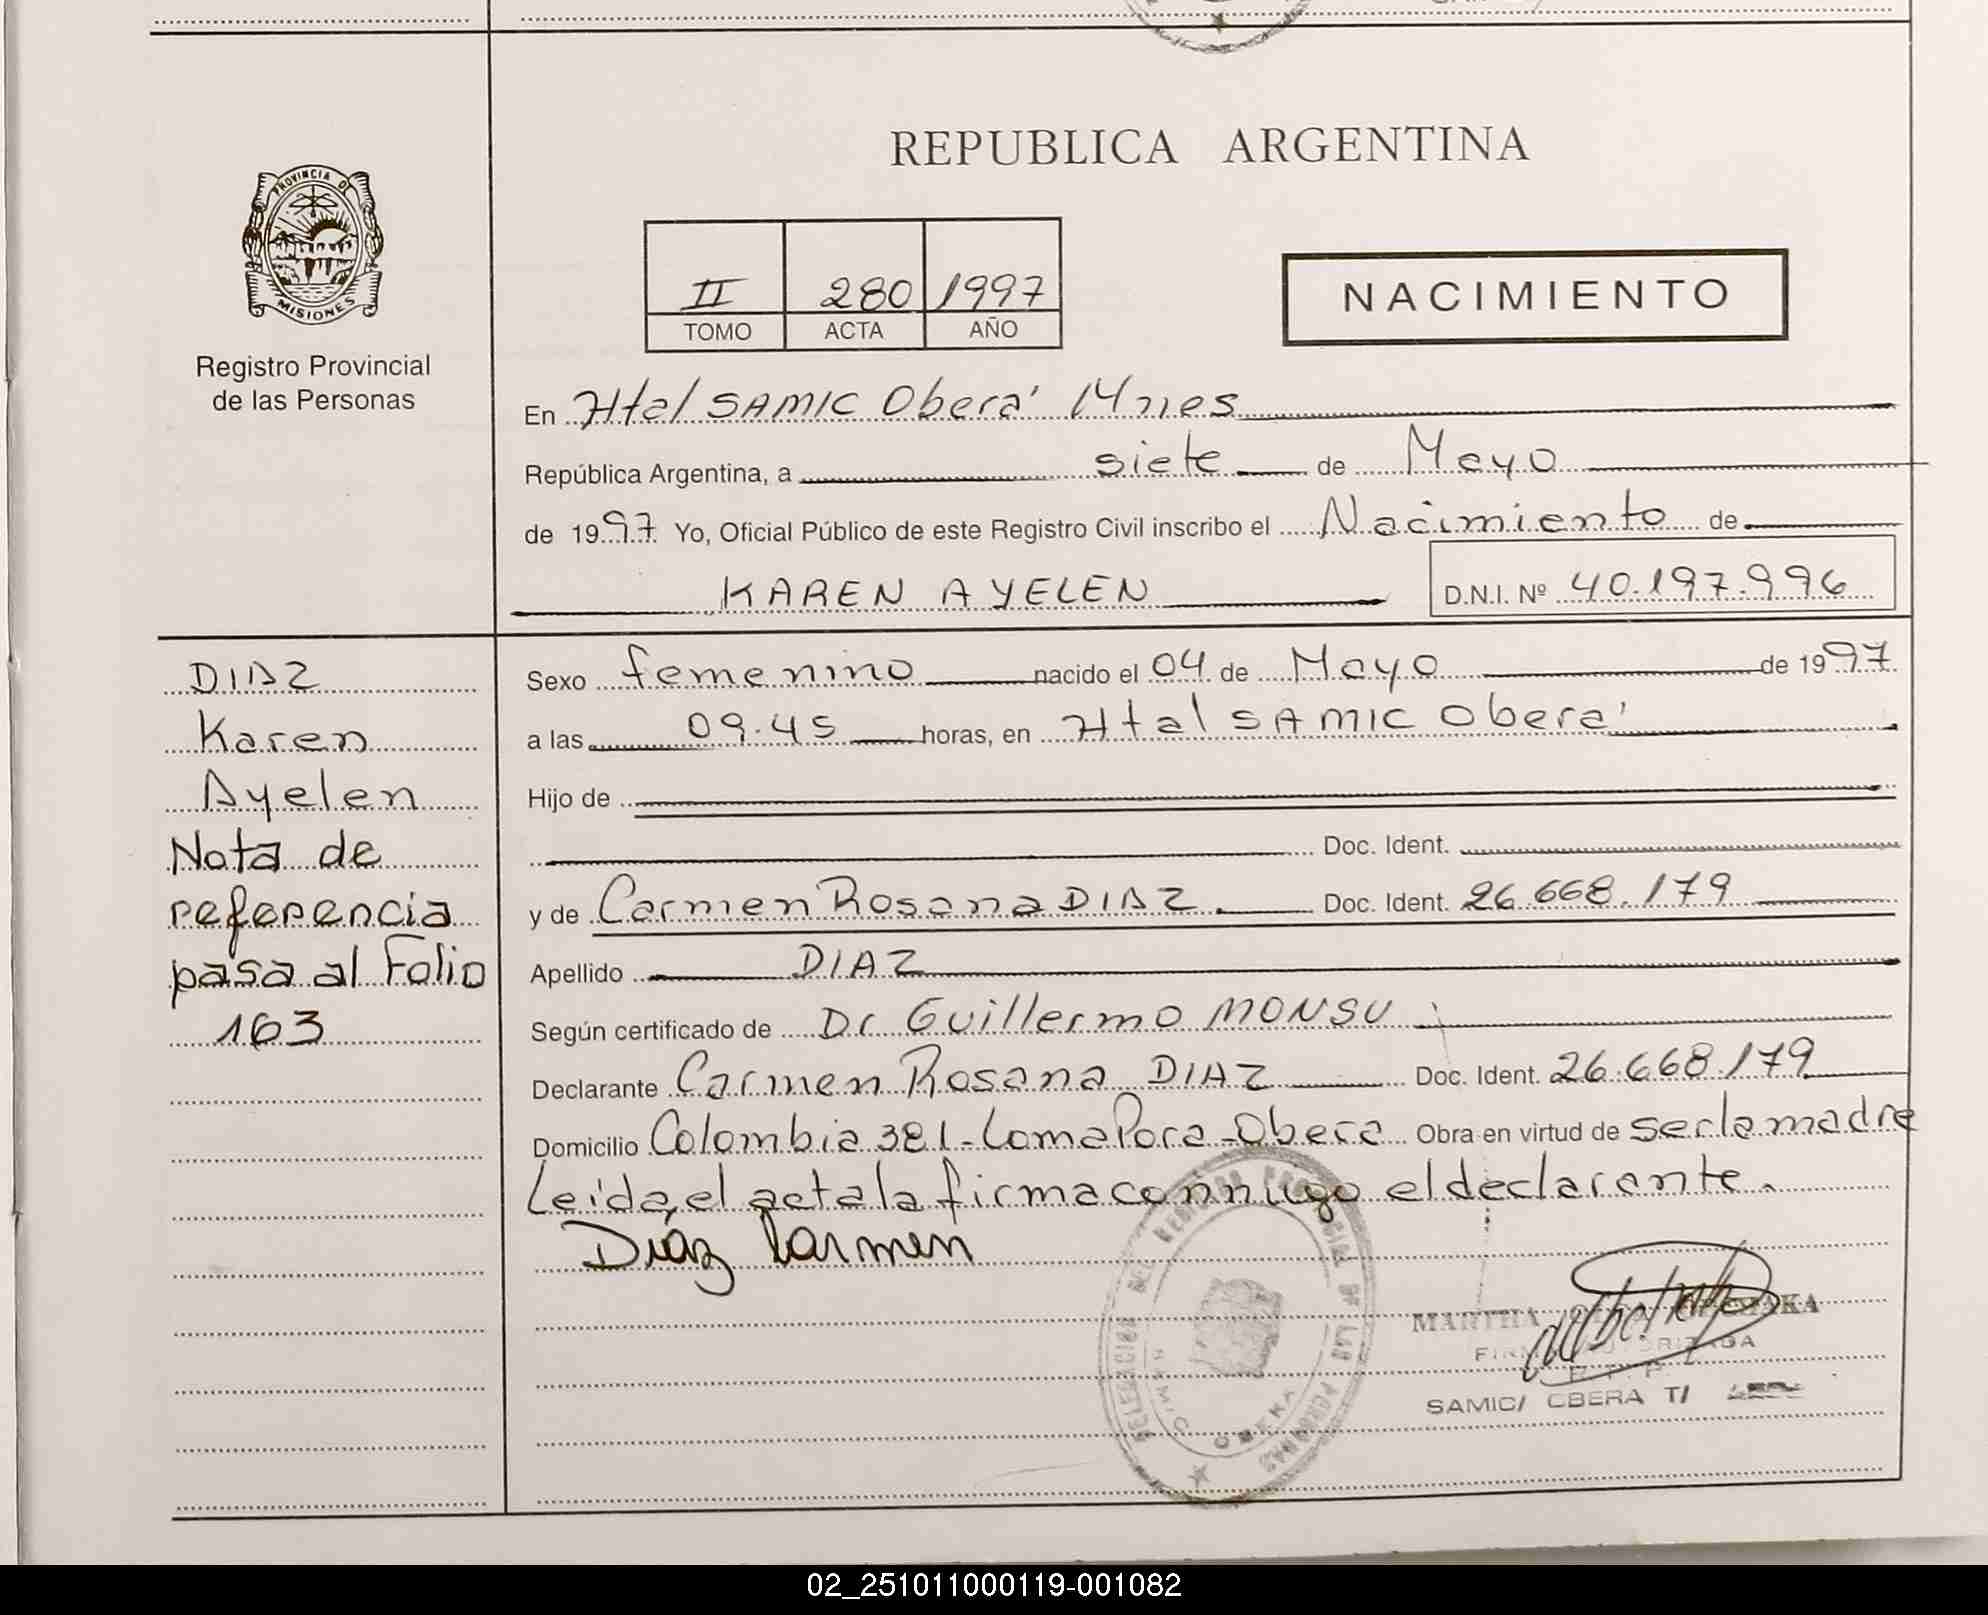 REPUBLICA ARGENTINA
PROVINCIA DE
MISIONES
Registro Provincial
de las Personas
II 280 1997
TOMO ACTA AÑO
NACIMIENTO
En Htal SAMIC Oberá Mnes
República Argentina, a siete de Mayo
de 1997 Yo, Oficial Público de este Registro Civil inscribo el Nacimiento de
KAREN AYELEN D.N.I. Nº 40.197.996
DIAZ
Karen
Ayelen
Nota de
referencia
pasa al Folio
163
Sexo femenino nacido el 04 de Mayo de 1997
a las 09.45 horas, en Htal SAMIC Oberá
Hijo de
Doc. Ident.
y de Carmen Rosana DIAZ Doc. Ident. 26.668.179
Apellido DIAZ
Según certificado de Dr Guillermo MONSU
Declarante Carmen Rosana DIAZ Doc. Ident. 26.668.179
Domicilio Colombia 381-Loma Pora-Obera Obra en virtud de ser la madre
Leida, el acta la firma conmigo el declarante.
Diaz Carmen
DELEGACION DEL REGISTRO PROVINCIAL DE LAS PERSONAS
SAMIC OBERA
MARTHA
SAMIC/ OBERA T/
02_251011000119-001082